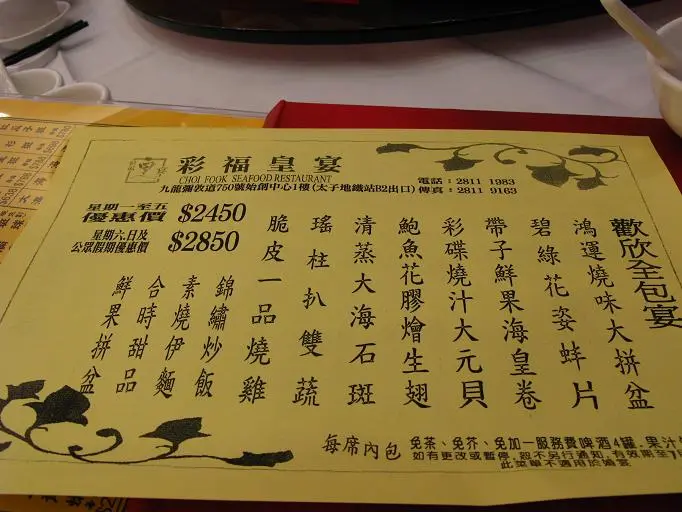 彩福皇宴
CHOI FOOK SEAFOOD RESTAURANT
九龍彌敦道750號始創中心1樓(太子地鐵站B2出口)
電話：2811 1983
傳真：2811 9163
星期一至五
優惠價 $2450
星期六,日及
公眾假期優惠價 $2850
歡欣全包宴
鴻運燒味大拼盆
碧綠花姿蚌片
帶子鮮果海皇卷
彩碟燒汁大元貝
鮑魚花膠燴生翅
清蒸大海石斑
瑤柱扒雙蔬
脆皮一品燒雞
錦繡炒飯
素燒伊麵
合時甜品
鮮果拼盆
每席內包
免茶、免芥、免加一服務費啤酒4罐,果汁
如有更改或暫停,恕不另行通知,有效期至
此菜單不適用於婚宴